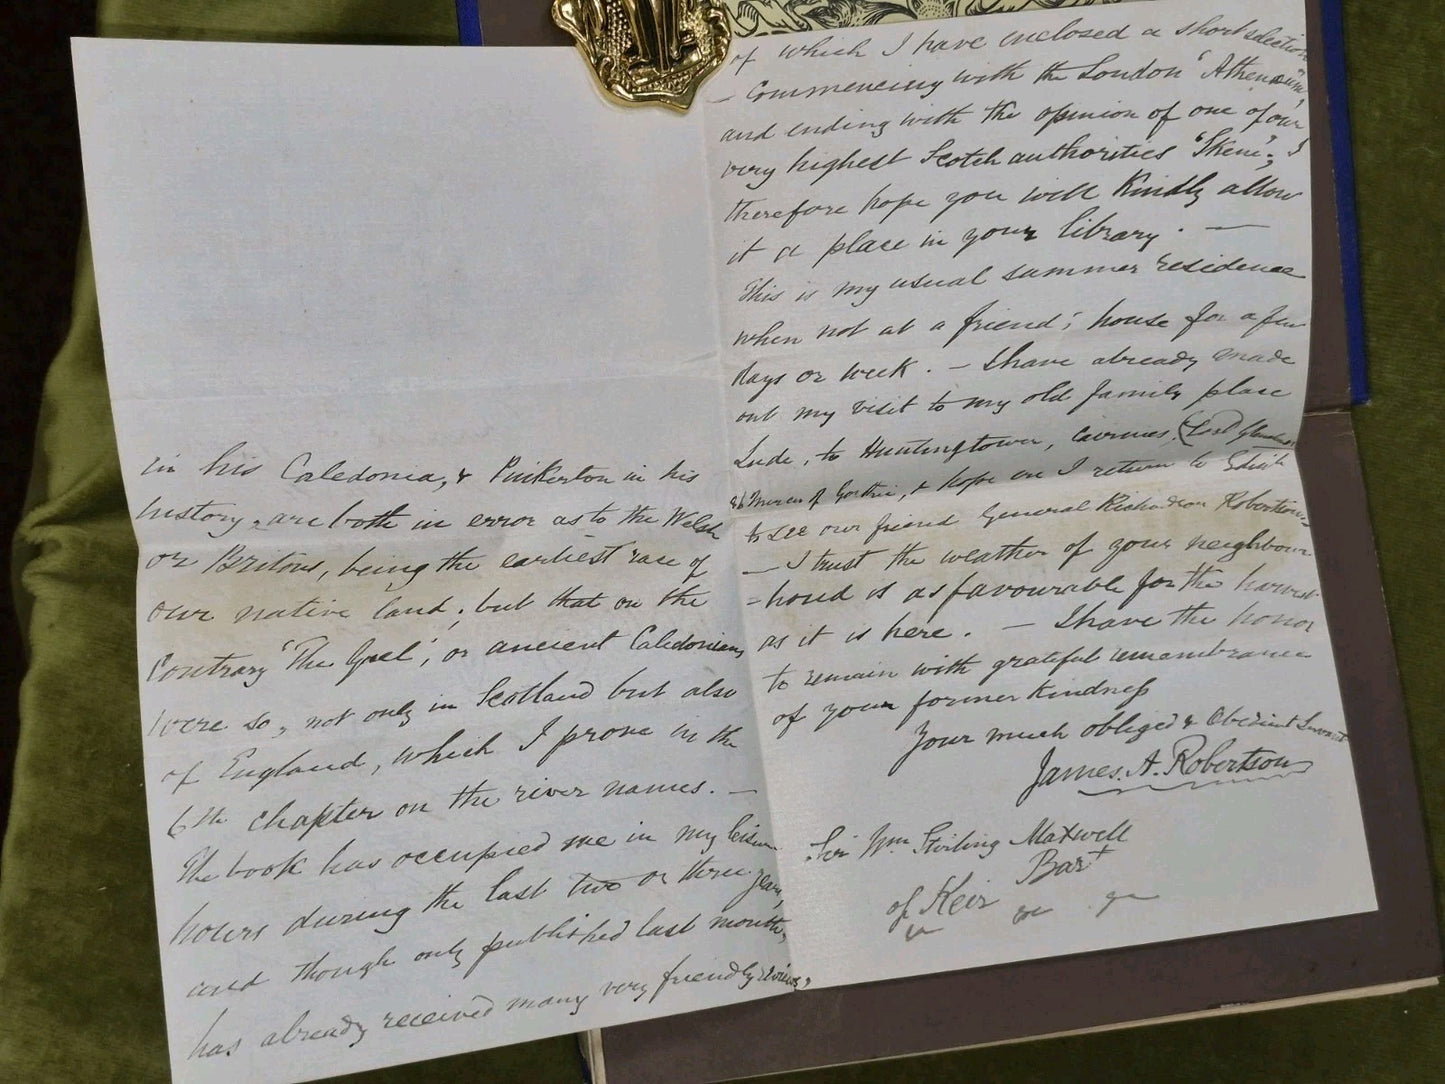 in his Caledonia, & Pinkerton in his
history, are both in error as to the Welsh
or Britons, being the earliest race of
our native land; but that on the
contrary 'The Gael', or ancient Caledonians
were so, not only in Scotland but also
of England, which I prove in the
6th chapter on the river names. —
The book has occupied me in my leisure
hours during the last two or three years,
and though only published last month,
has already received many very friendly reviews,
of which I have enclosed a short selection
— Commencing with the London 'Athenaeum'
and ending with the opinion of one of our
very highest Scotch authorities 'Skene'; I
therefore hope you will kindly allow
it a place in your library. —
This is my usual summer residence
when not at a friend's house for a few
days or week. — I have already made
out my visit to my old family place
Lude, to Huntingtower, Cairnies, (Lord
of Gorthie, & hope on I return to Edinb
to see our friend General Richardson Robertson —
— I trust the weather of your neighbour
-hood is as favourable for the harvest
as it is here. — I have the honor
to remain with grateful remembrance
of your former kindness
Your much obliged & Obedient Servant
James. A. Robertson
Sir Wm Stirling Maxwell
Bart
of Keir